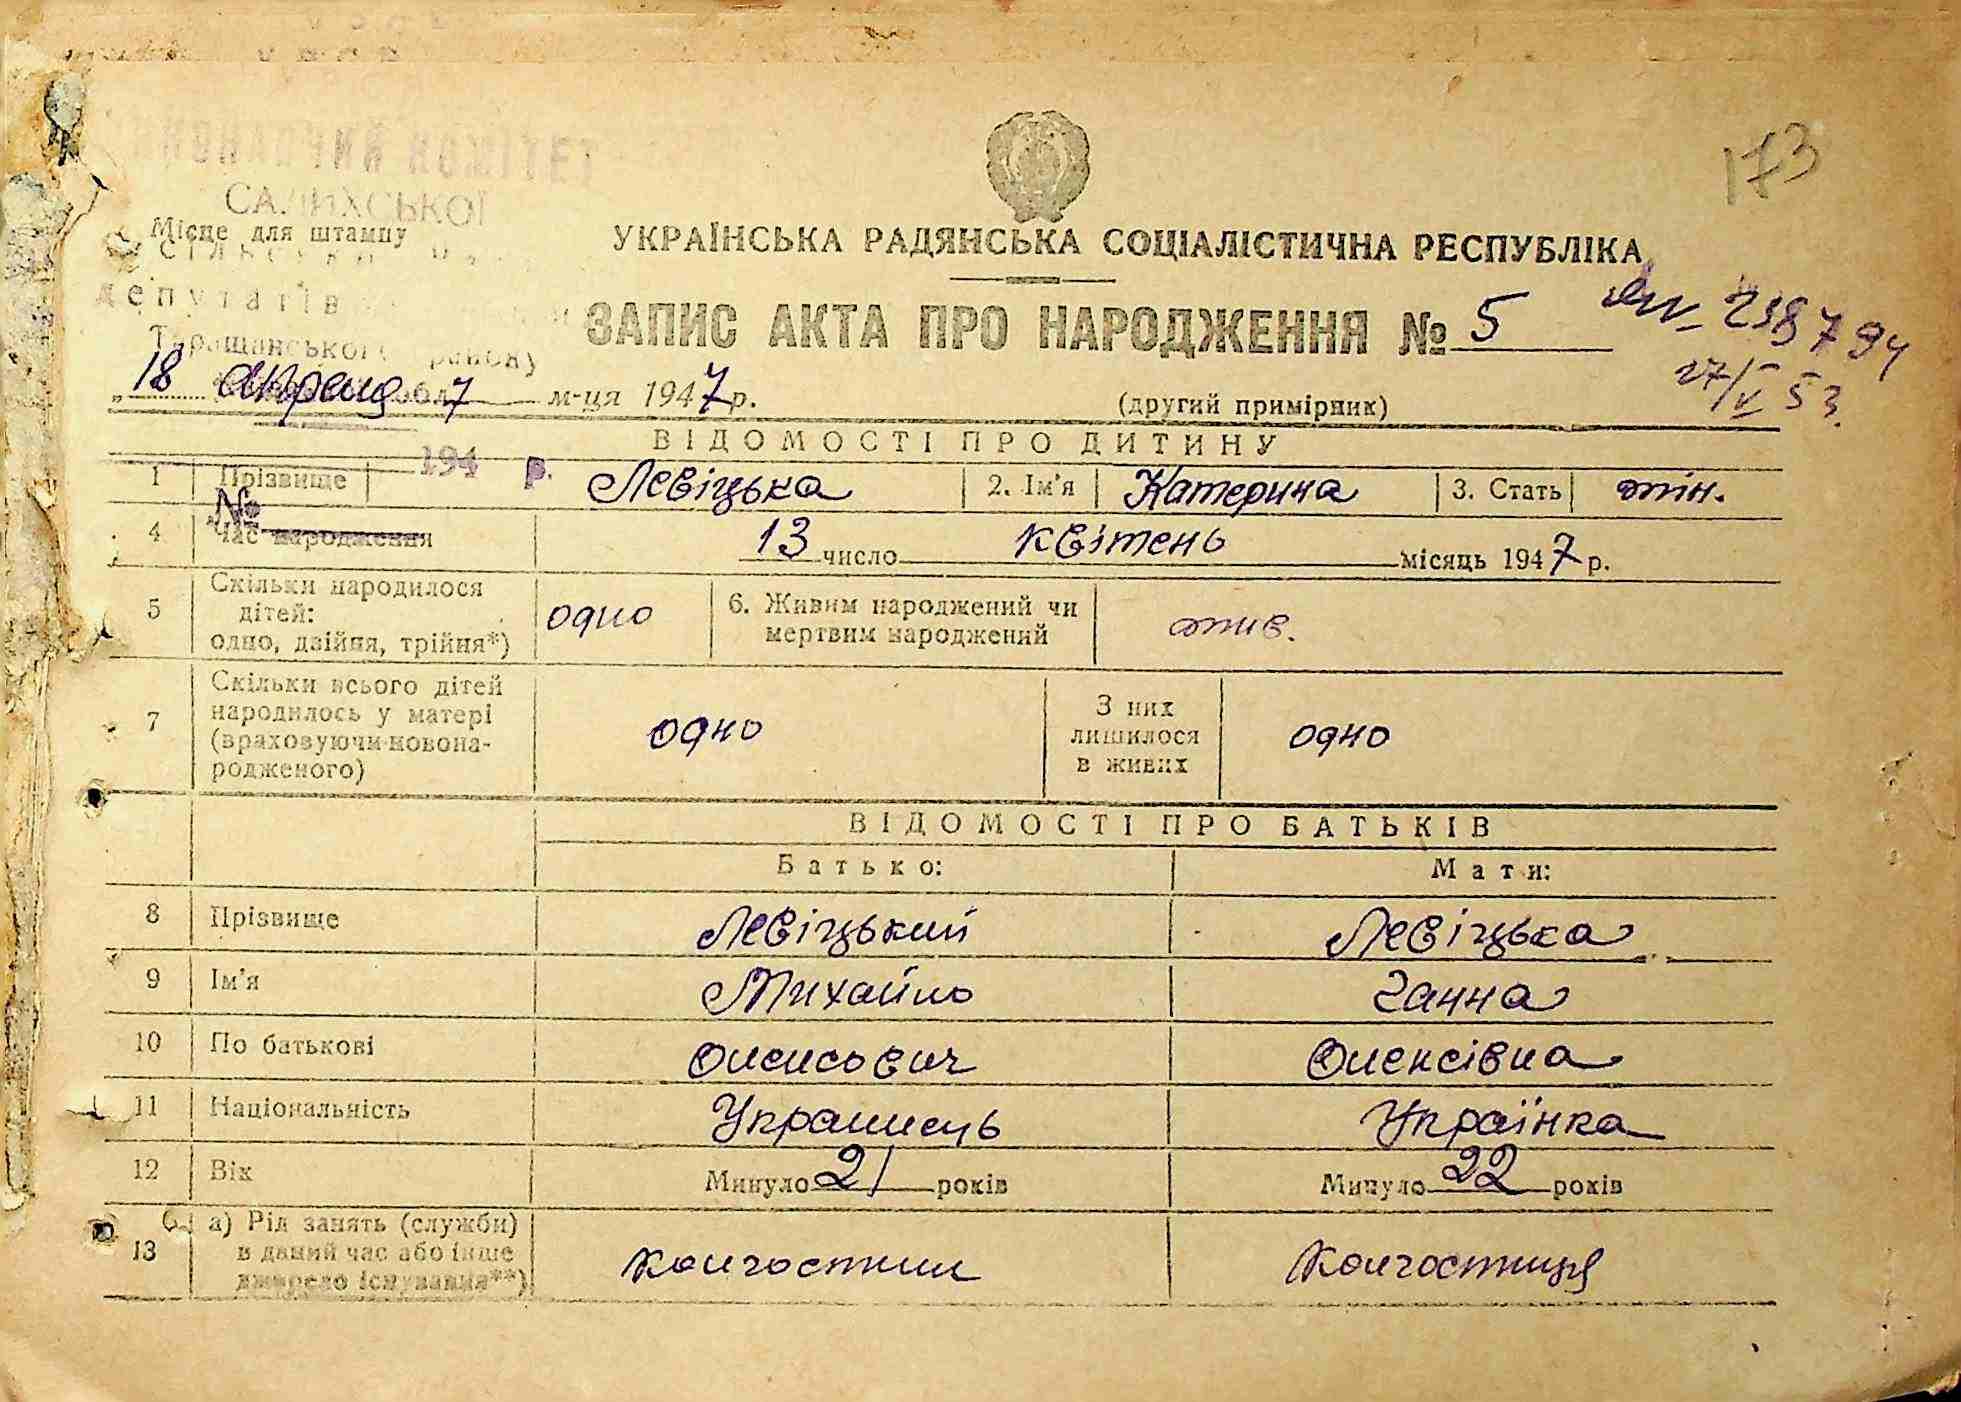 173
ВИКОНАВЧИЙ КОМІТЕТ
САЛИХСЬКОЇ
Місце для штампу
УКРАЇНСЬКА РАДЯНСЬКА СОЦІАЛІСТИЧНА РЕСПУБЛІКА
депутатів
ЗАПИС АКТА ПРО НАРОДЖЕННЯ № 5
238794
27/V 53.
Таращанського району
„18 апреля м-ця 1947 р.
(другий примірник)
194 р.
ВІДОМОСТІ ПРО ДИТИНУ
1 Прізвище Левіцька 2. Ім'я Катерина 3. Стать жін.
№
4 Час народження 13 число квітень місяць 1947 р.
5 Скільки народилося
дітей:
одно, двійня, трійня*) одно 6. Живим народжений чи
мертвим народжений жив.
7 Скільки всього дітей
народилось у матері
(враховуючи новона-
родженого) одно З них
лишилося
в живих одно
ВІДОМОСТІ ПРО БАТЬКІВ
Батько: Мати:
8 Прізвище Левіцький Левіцька
9 Ім'я Михайло Ганна
10 По батькові Олексівна
11 Національність Українець Українка
12 Вік Минуло 21 років Минуло 22 років
13 а) Рід занять (служби)
в даний час або інше
джерело існування**) Колгоспник Колгоспниця